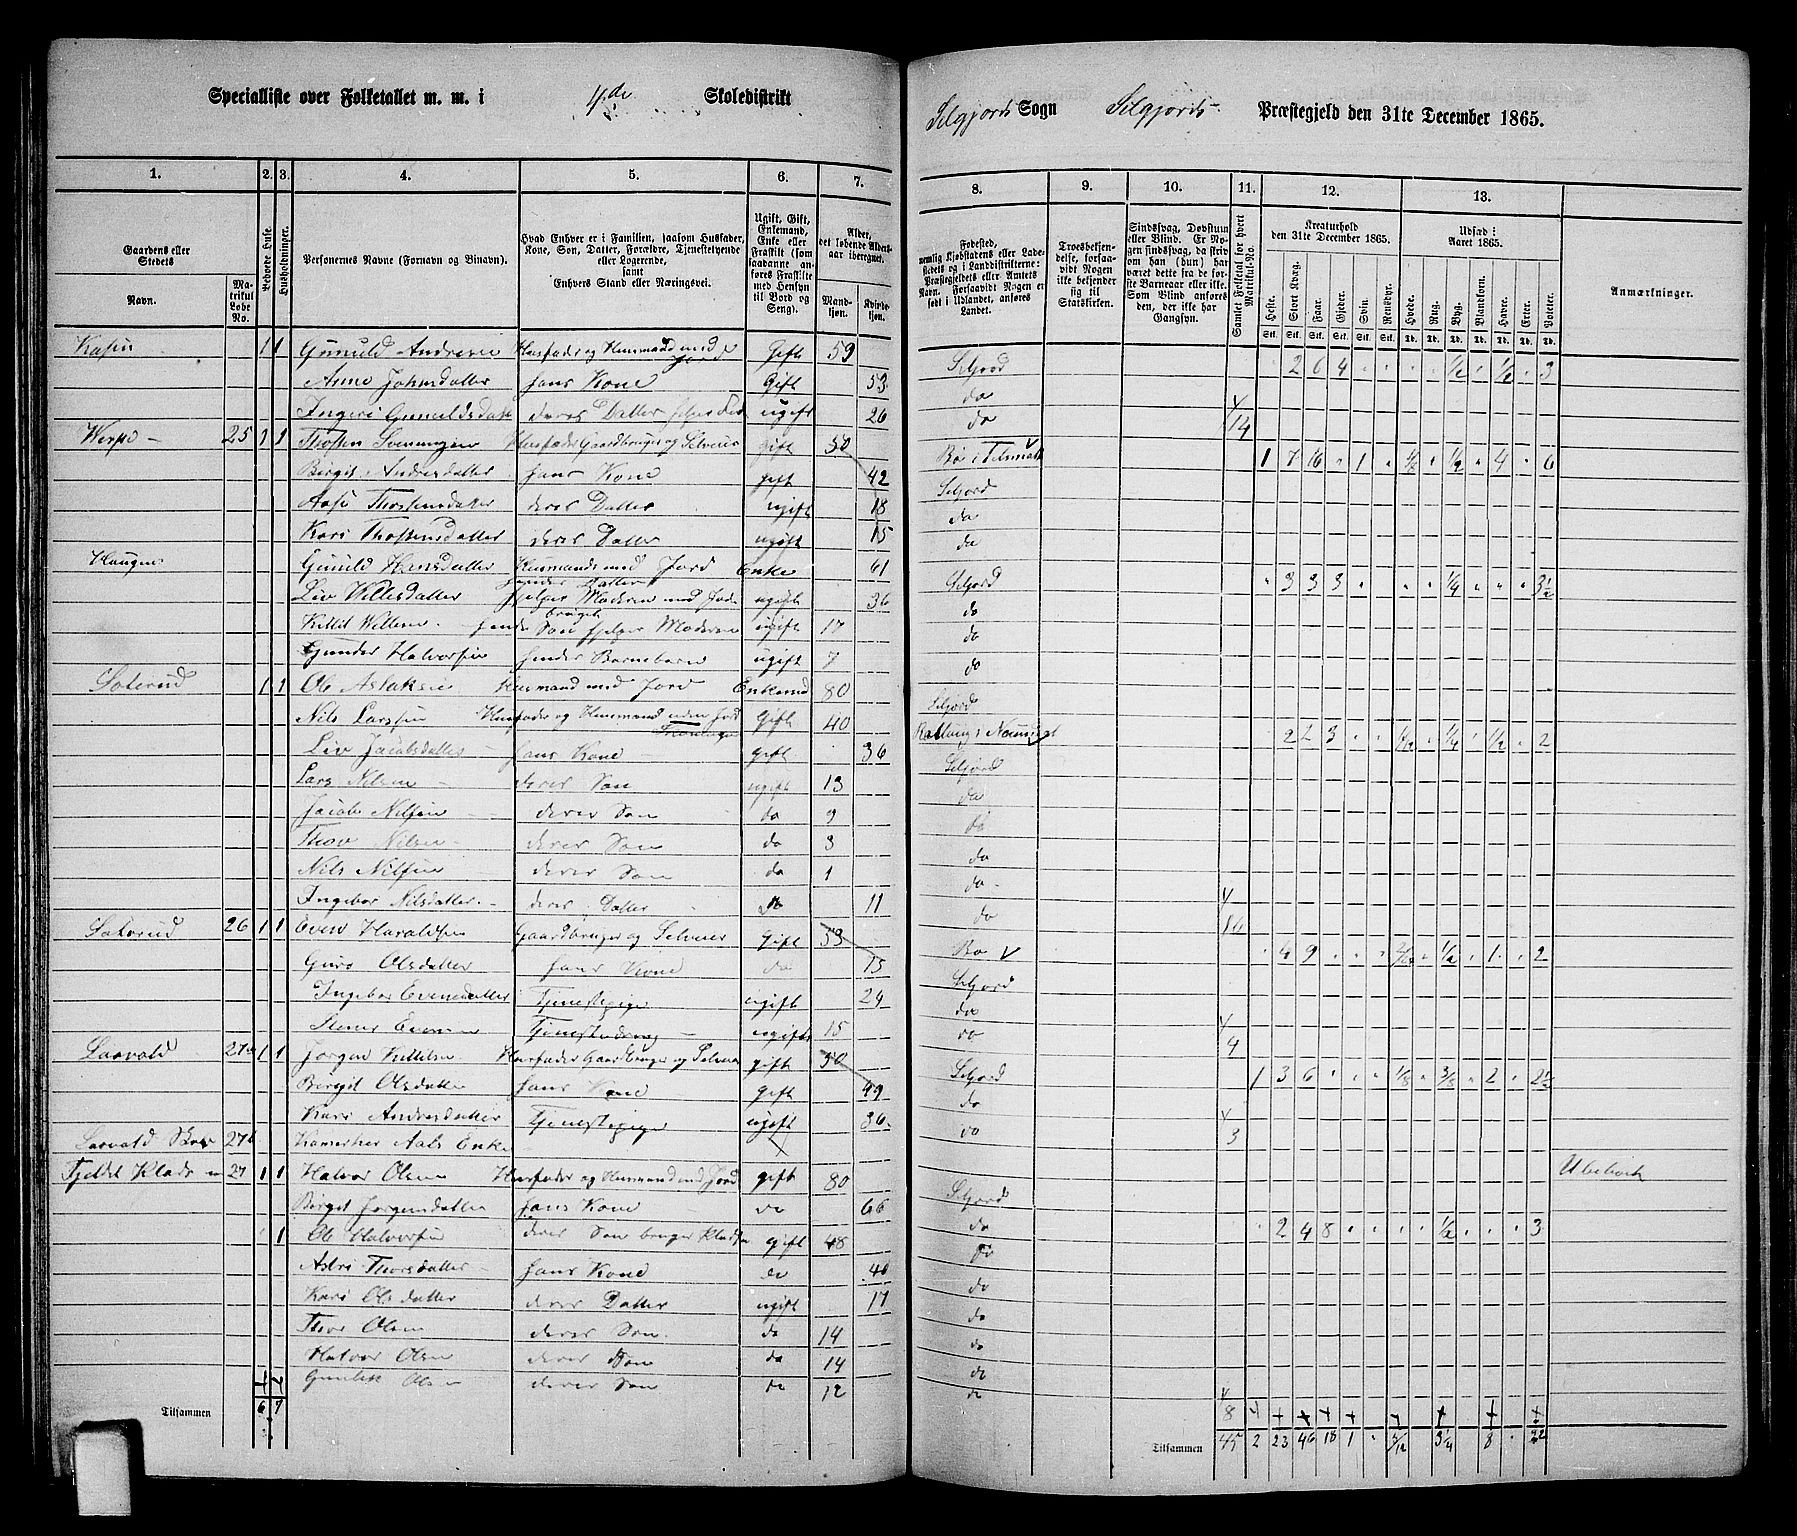 Specialliste over Folketallet m. m. i 4de Skoledistrikt
Selgjords Sogn Selgjords Præstegjeld den 31te December 1865.
1. 2. 3. 4. 5. 6. 7.
8. 9. 10. 11. 12. 13.
Gaardens eller Stedets
Navn. Matrikul Løbe No.
Beboede Huse.
Husholdninger.
Personernes Navne (Fornavn og Binavn).
Hvad Enhver er i Familien, saasom Husfader, Kone, Søn, Datter, Forældre, Tjenestetyende eller Logerende, samt Enhvers Stand eller Næringsvei.
Ugift, Gift, Enkemand, Enke eller Fraskilt (saadanne anføres Fraskilte med Hensyn til Bord og Seng).
Alder, det løbende Alders-aar iberegnet.
Mandkjøn. Kvindekjøn.
Troesbekjendelse, forsaavidt Nogen ikke bekjender sig til Statskirken.
Samlet Folketal for hvert Matrikul-No.
Kreaturhold den 31te December 1865.
Heste. Stort Kvæg. Faar. Gjeder. Svin. Rensdyr.
Udsæd i Aaret 1865.
Hvede. Rug. Byg. Blandkorn. Havre. Erter. Poteter.
Anmærkninger.
Kasin 1 1 Gunuld Andresen Husfader og Husmand med Jord Gift 59 Seljord 2 6 4 1/2 1/2 3
Anne Johnsdatter hans Kone Gift 53 do
Ingeri Gunuldsdatter deres Datter ugift 26 do 14
Werpe 25 1 1 Thosten Sveningsen Husfader Gaardbruger og Selveier gift 50 Bø i Telemark 1 7 16 1 1/2 4 6
Birgit Andresdatter hans Kone gift 42 Seljord
Aase Thostensdatter deres Datter ugift 18 do
Kari Thostensdatter deres Datter ugift 15 do
Haugen Gunild Hansdatter Husmands med Jord Enke 61 Seljord 3 3 3 1/4 3 1/2
Liv Villesdatter hendes Datter hjelper Moderen med Jordbruget ugift 36 do
Kittil Willesen hendes Søn hjelper Moderen ugift 17 do
Gunder Halvorsen hendes Barnebarn ugift 7 do
Saterud 1 1 Ole Aslaksen Husmand med Jord Enkemd 80 Seljord
Nils Larssen Husfader og Husmand uden Jord Gift 40 2 2 3 1/4 1/2 2
Liv Jacobsdatter hans Kone gift 36 Seljord
Lars Nilsen deres Søn ugift 13 do
Jacob Nilsen deres Søn do 9 do
Thov Nilsen deres Søn do 3 do
Nils Nilsen deres Søn do 1 do
Ingebor Nilsdatter deres Datter do 11 do 16
Saterud 26 1 1 Even Haraldsen Gaardbruger og Selveier Gift 53 Bø 4 9 1/2 1 2
Guro Olsdatter hans Kone do Seljord
Ingebor Evensdatter Tjenestepige ugift 24 do
Stener Evensen Tjenestedreng ugift 15 do 4
Laavald 27a 1 1 Jorgen Kittilsen Husfader Gaardbruger og Selveier gift 50 Seljord 1 3 6 1/8 3/8 2 2 1/2
Birgit Olsdatter hans Kone gift 49 do
Kari Andresdatter Tjenestepige ugift 36 do 3
Laavald Skov 27b Kamerher Aals Enke Ubeboet
27 1 1 Halvor Olsen Husfader og Husmand med Jord gift 80 Seljord
Birgit Jorgensdatter hans Kone do 66 do
1 Ole Halvorsen deres Søn bruger Pladsen gift 48 do 2 4 8 1/2 3
Astri Thorsdatter hans Kone do 40 do
Kari Olsdatter deres Datter ugift 17 do
Thor Olsen deres Søn do 14 do
Halvor Olsen deres Søn do 14 do
Gunlek Olsen deres Søn do 12 do 8
Tilsammen 6 7
Tilsammen 45 2 23 46 18 1 3 1/4 8 22